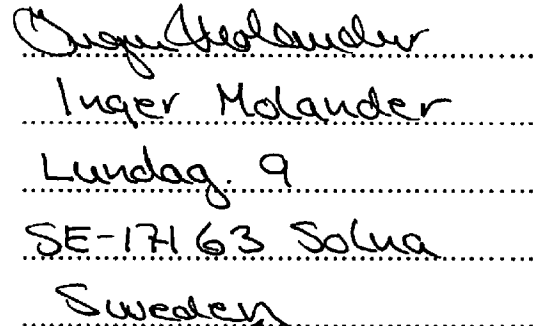 Inger Molander
Inger Molander
Lundag. 9
SE-171 63 Solna
Sweden